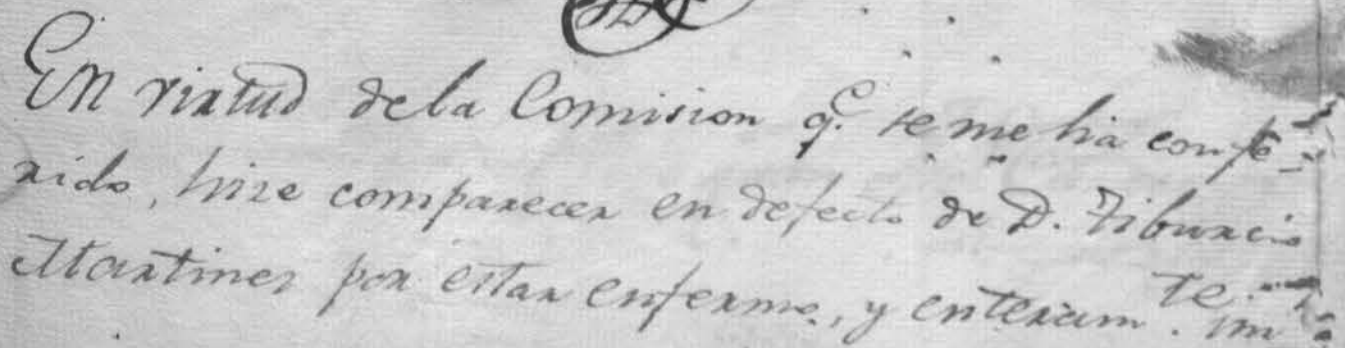 En virtud de la Comision q.e se me ha confe-
rido, hize comparecer en defecto de D. Tiburcio
Martines por estar enfermo, y enteram.te im